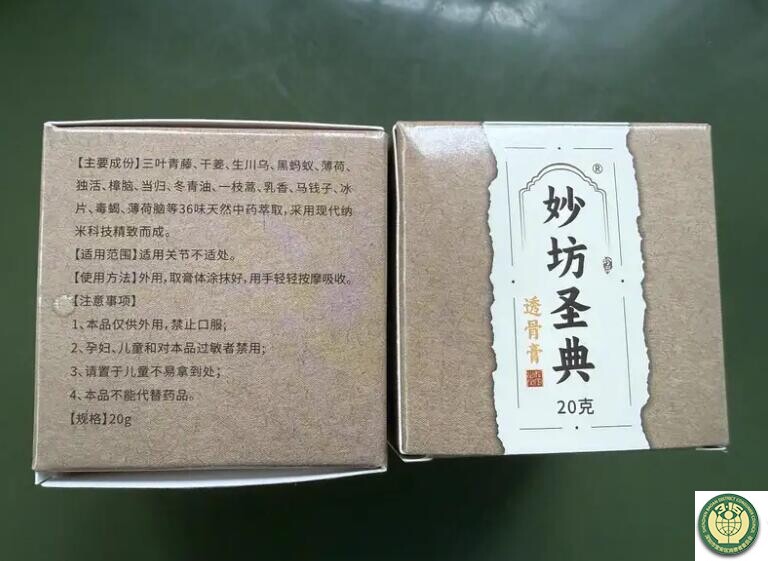 【主要成份】三叶青藤、干姜、生川乌、黑蚂蚁、薄荷、
独活、樟脑、当归、冬青油、一枝蒿、乳香、马钱子、冰
片、毒蝎、薄荷脑等36味天然中药萃取，采用现代纳
米科技精致而成。
【适用范围】适用关节不适处。
【使用方法】外用，取膏体涂抹好，用手轻轻按摩吸收。
【注意事项】
1、本品仅供外用，禁止口服；
2、孕妇、儿童和对本品过敏者禁用；
3、请置于儿童不易拿到处；
4、本品不能代替药品。
【规格】20g
®
妙坊圣典
透骨膏
20克